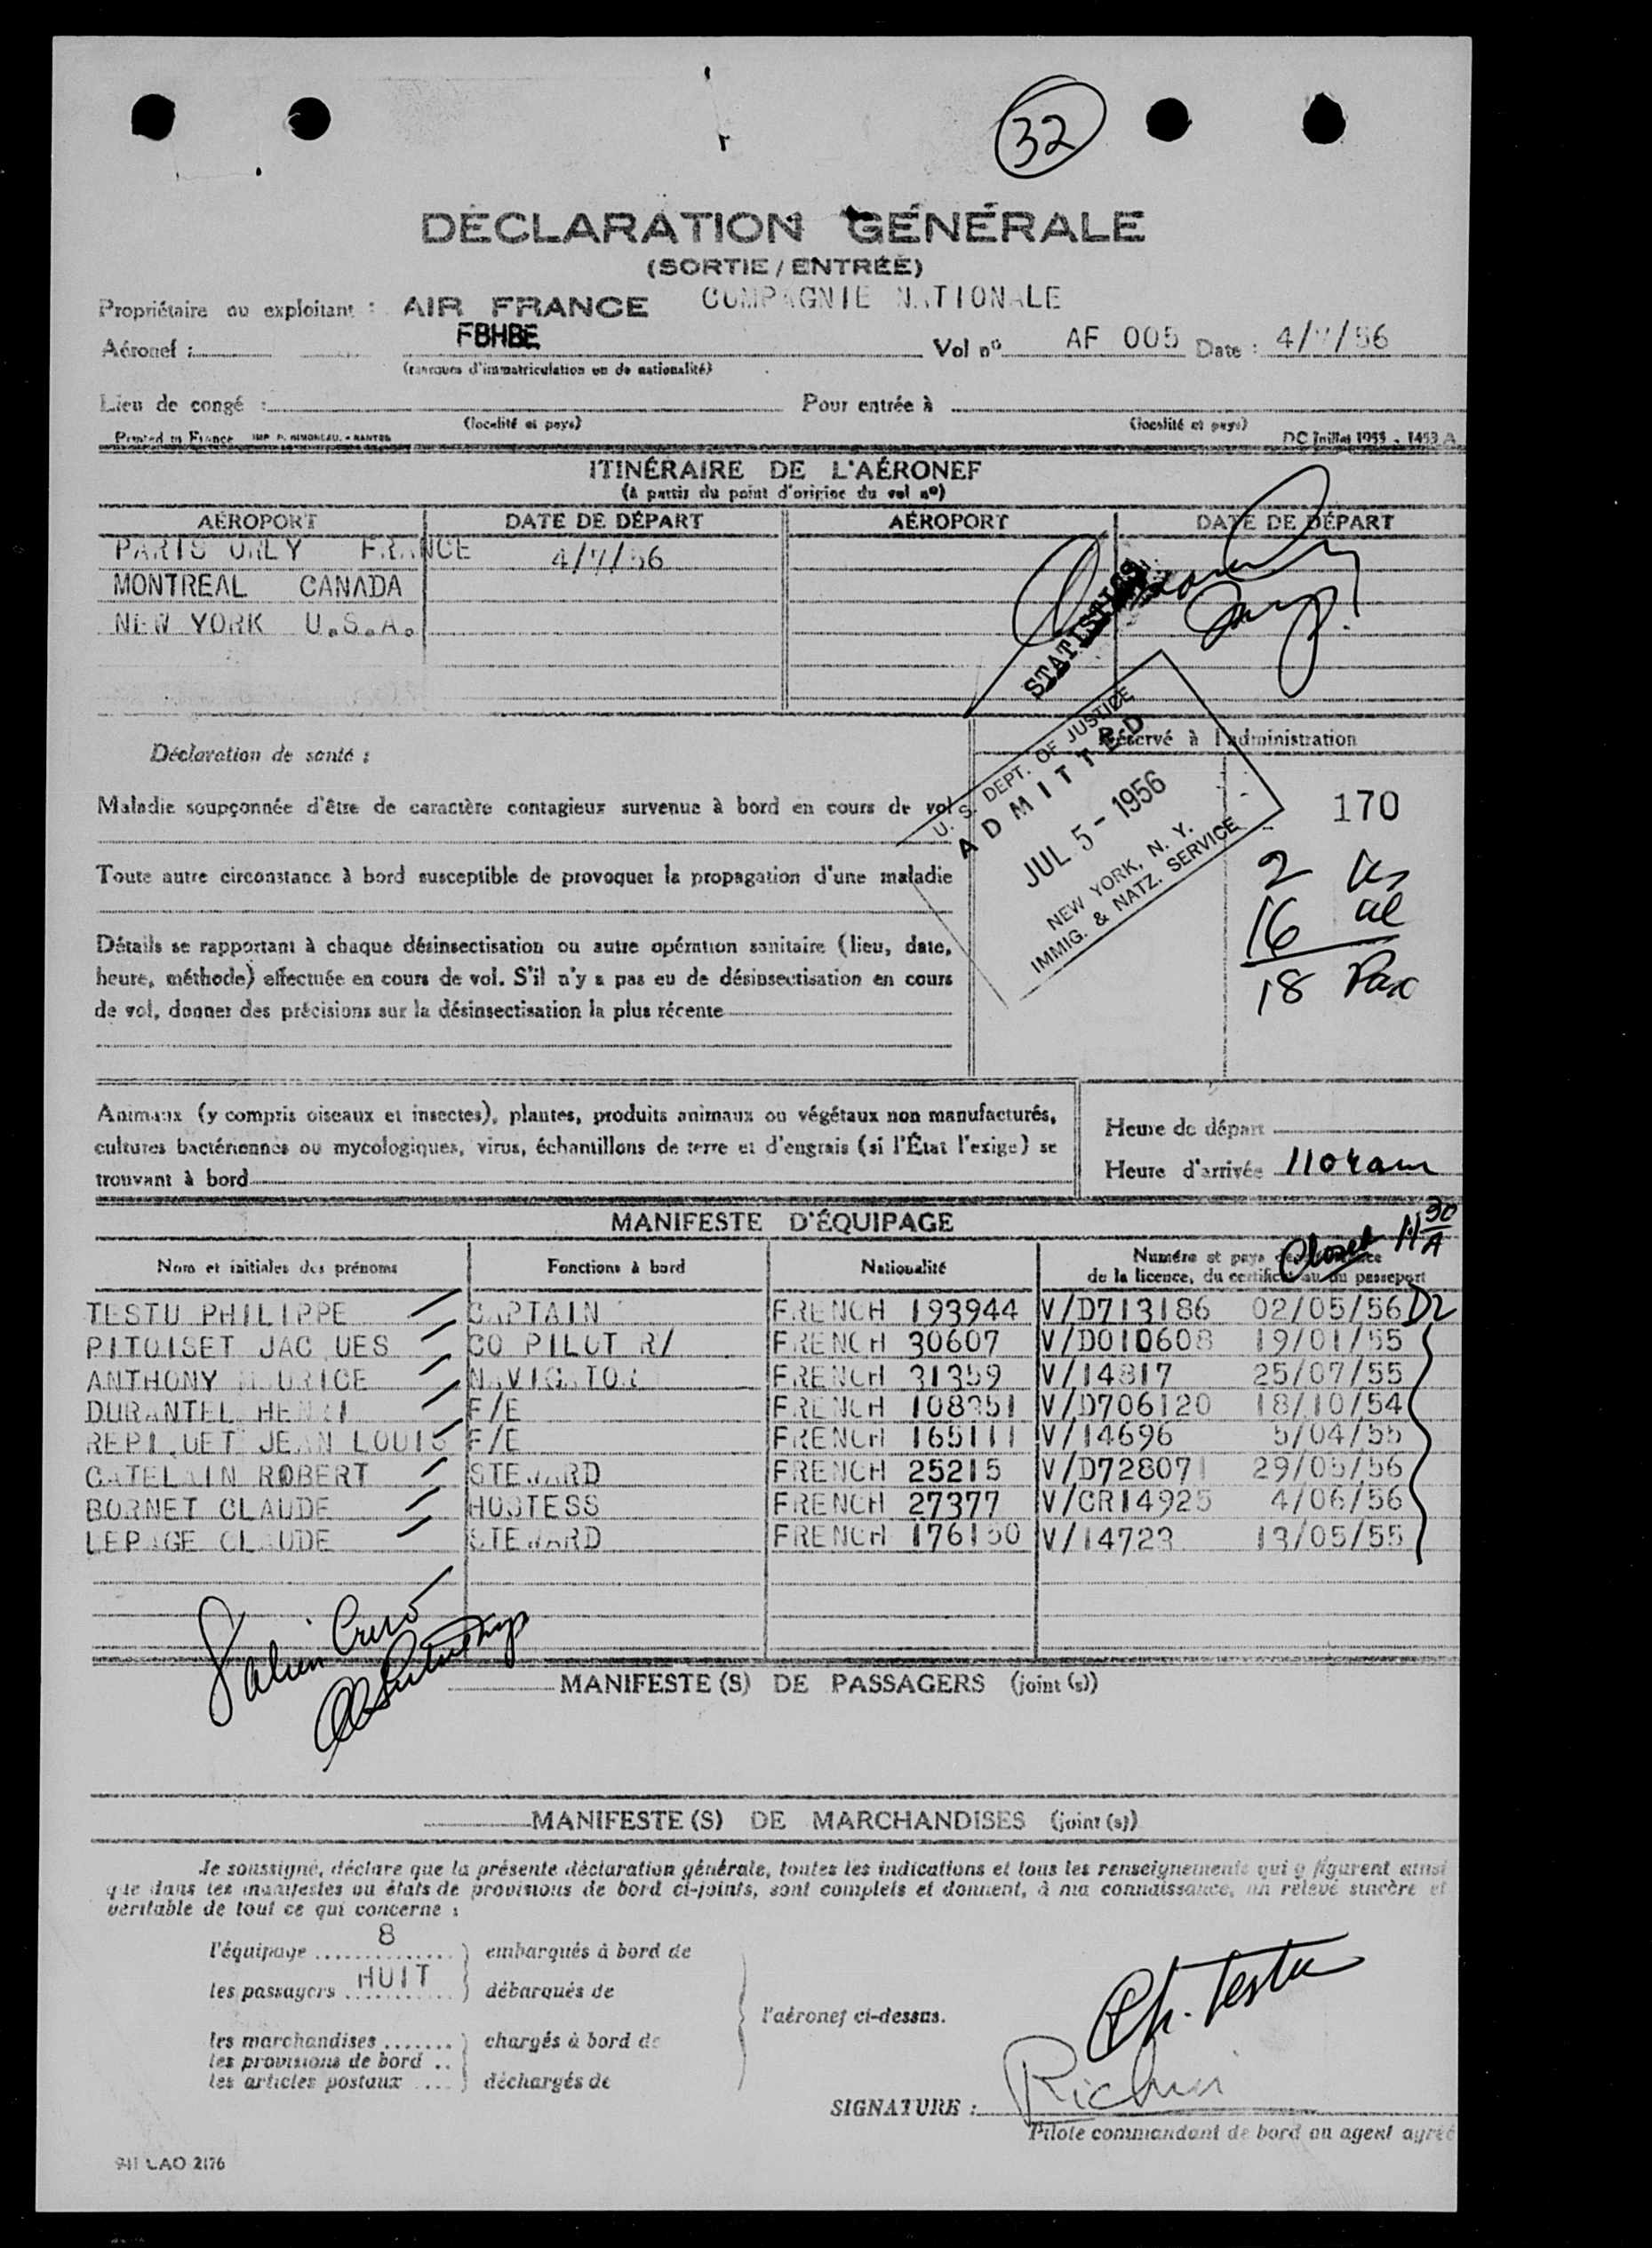 32
DÉCLARATION GÉNÉRALE
(SORTIE / ENTRÉE)
Propriétaire ou exploitant : AIR FRANCE COMPAGNIE NATIONALE
Aéronef : FBHBE Vol nº AF 005 Date : 4/7/56
(marques d'immatriculation ou de nationalité)
Lieu de congé : Pour entrée à
(localité et pays) (localité et pays)
Printed in France IMP P. SIMONEAU. - NANTES DC Juillet 1953 - 1453 A
ITINÉRAIRE DE L'AÉRONEF
(à partir du point d'origine du vol nº)
AÉROPORT DATE DE DÉPART AÉROPORT DATE DE DÉPART
PARIS ORLY FRANCE 4/7/56
MONTREAL CANADA
NEW YORK U.S.A.
STATISTICS
Déclaration de santé :
Réservé à l'administration
U. S. DEPT. OF JUSTICE
ADMITTED
JUL 5 - 1956
NEW YORK, N. Y.
IMMIG. & NATZ. SERVICE
170
2 us
16 al
18 Pax
Maladie soupçonnée d'être de caractère contagieux survenue à bord en cours de vol
Toute autre circonstance à bord susceptible de provoquer la propagation d'une maladie
Détails se rapportant à chaque désinsectisation ou autre opération sanitaire (lieu, date,
heure, méthode) effectuée en cours de vol. S'il n'y a pas eu de désinsectisation en cours
de vol, donner des précisions sur la désinsectisation la plus récente
Animaux (y compris oiseaux et insectes), plantes, produits animaux ou végétaux non manufacturés,
cultures bactériennes ou mycologiques, virus, échantillons de terre et d'engrais (si l'État l'exige) se
trouvant à bord
Heure de départ
Heure d'arrivée 1104am
MANIFESTE D'ÉQUIPAGE
Closed 11 30 A
Nom et initiales des prénoms Fonctions à bord Nationalité Numéro et pays de délivrance
de la licence, du certificat ou du passeport
TESTU PHILIPPE CAPTAIN FRENCH 193944 V/D713186 02/05/56 D2
PITOISET JAC UES CO PILOT R/ FRENCH 30607 V/D010608 19/01/55
ANTHONY MAURICE NAVIGATOR FRENCH 31359 V/14817 25/07/55
DURANTEL HENRI F/E FRENCH 108351 V/D706120 18/10/54
REPIQUET JEAN LOUIS F/E FRENCH 165111 V/14696 5/04/55
CATELAIN ROBERT STEWARD FRENCH 25215 V/D728071 29/05/56
BORNET CLAUDE HOSTESS FRENCH 27377 V/CR14925 4/06/56
LEPAGE CLAUDE STEWARD FRENCH 176150 V/14723 13/05/55
MANIFESTE (S) DE PASSAGERS (joint (s))
MANIFESTE (S) DE MARCHANDISES (joint (s))
Je soussigné, déclare que la présente déclaration générale, toutes les indications et tous les renseignements qui y figurent ainsi
que dans les manifestes ou états de provisions de bord ci-joints, sont complets et donnent, à ma connaissance, un relevé sincère et
véritable de tout ce qui concerne :
l'équipage 8 embarqués à bord de
les passagers HUIT débarqués de
l'aéronef ci-dessus.
les marchandises chargés à bord de
les provisions de bord
les articles postaux déchargés de
Ph. Testu
SIGNATURE :
Pilote commandant de bord ou agent agréé
941 LAO 2176